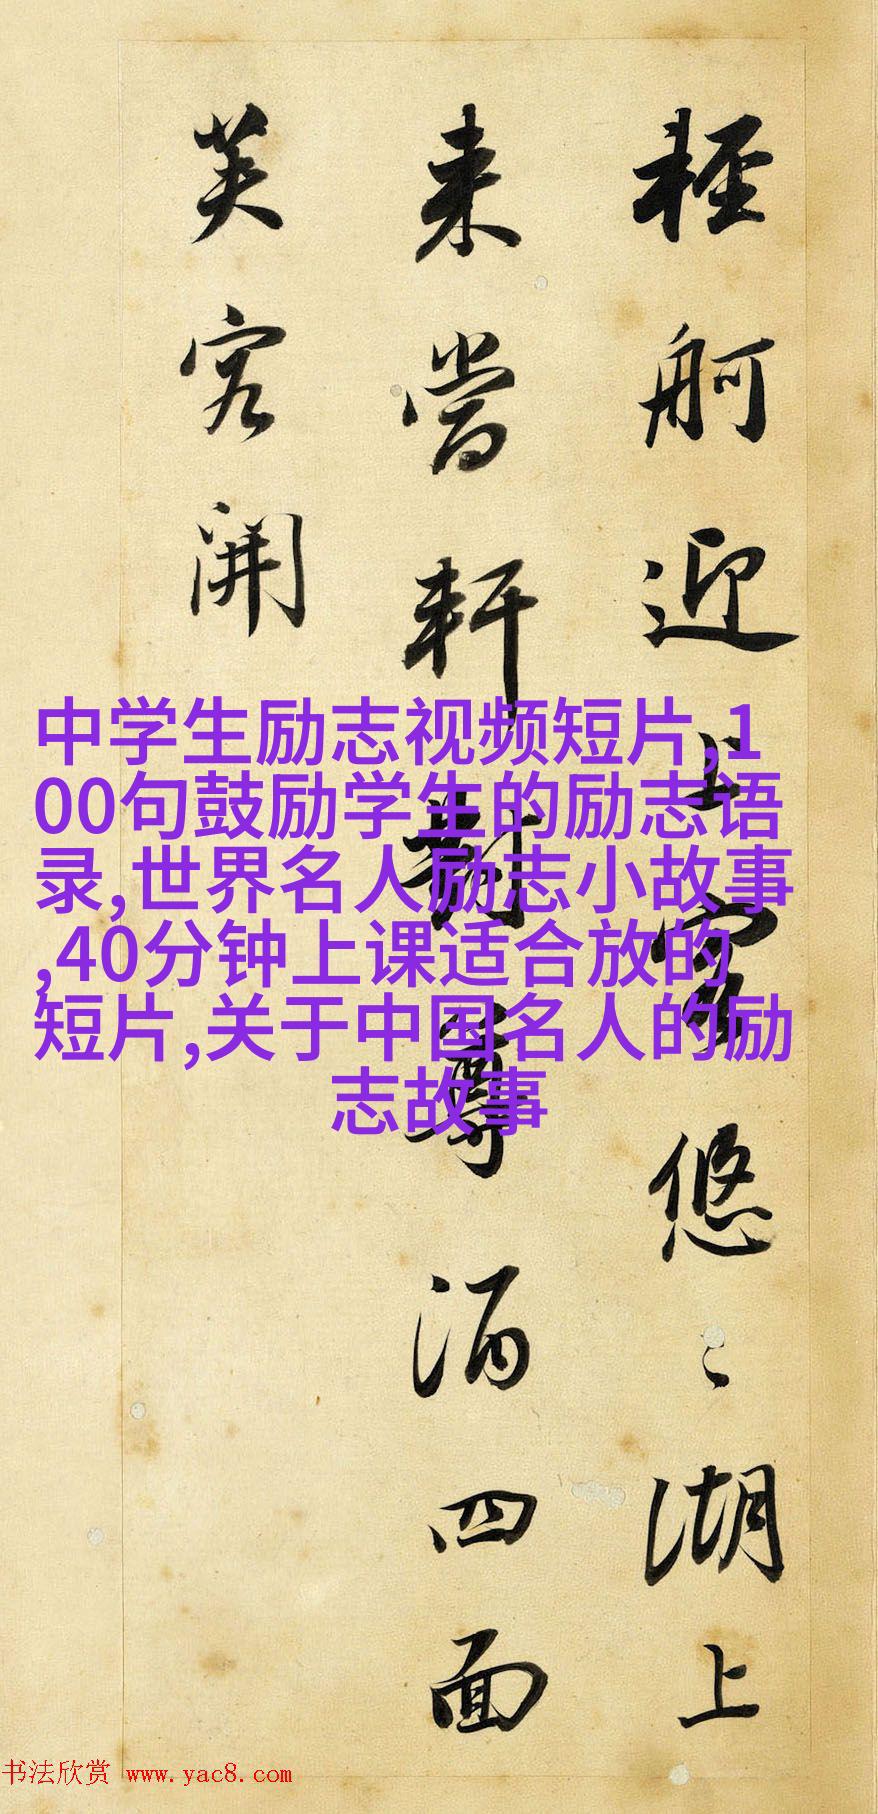 輕舸迎上客悠〻湖上
来當軒對尊酒四面
芙容開
中学生励志视频短片,1
00句鼓励学生的励志语
录,世界名人励志小故事
,40分钟上课适合放的
短片,关于中国名人的励
志故事
书法欣赏 www.yac8.com